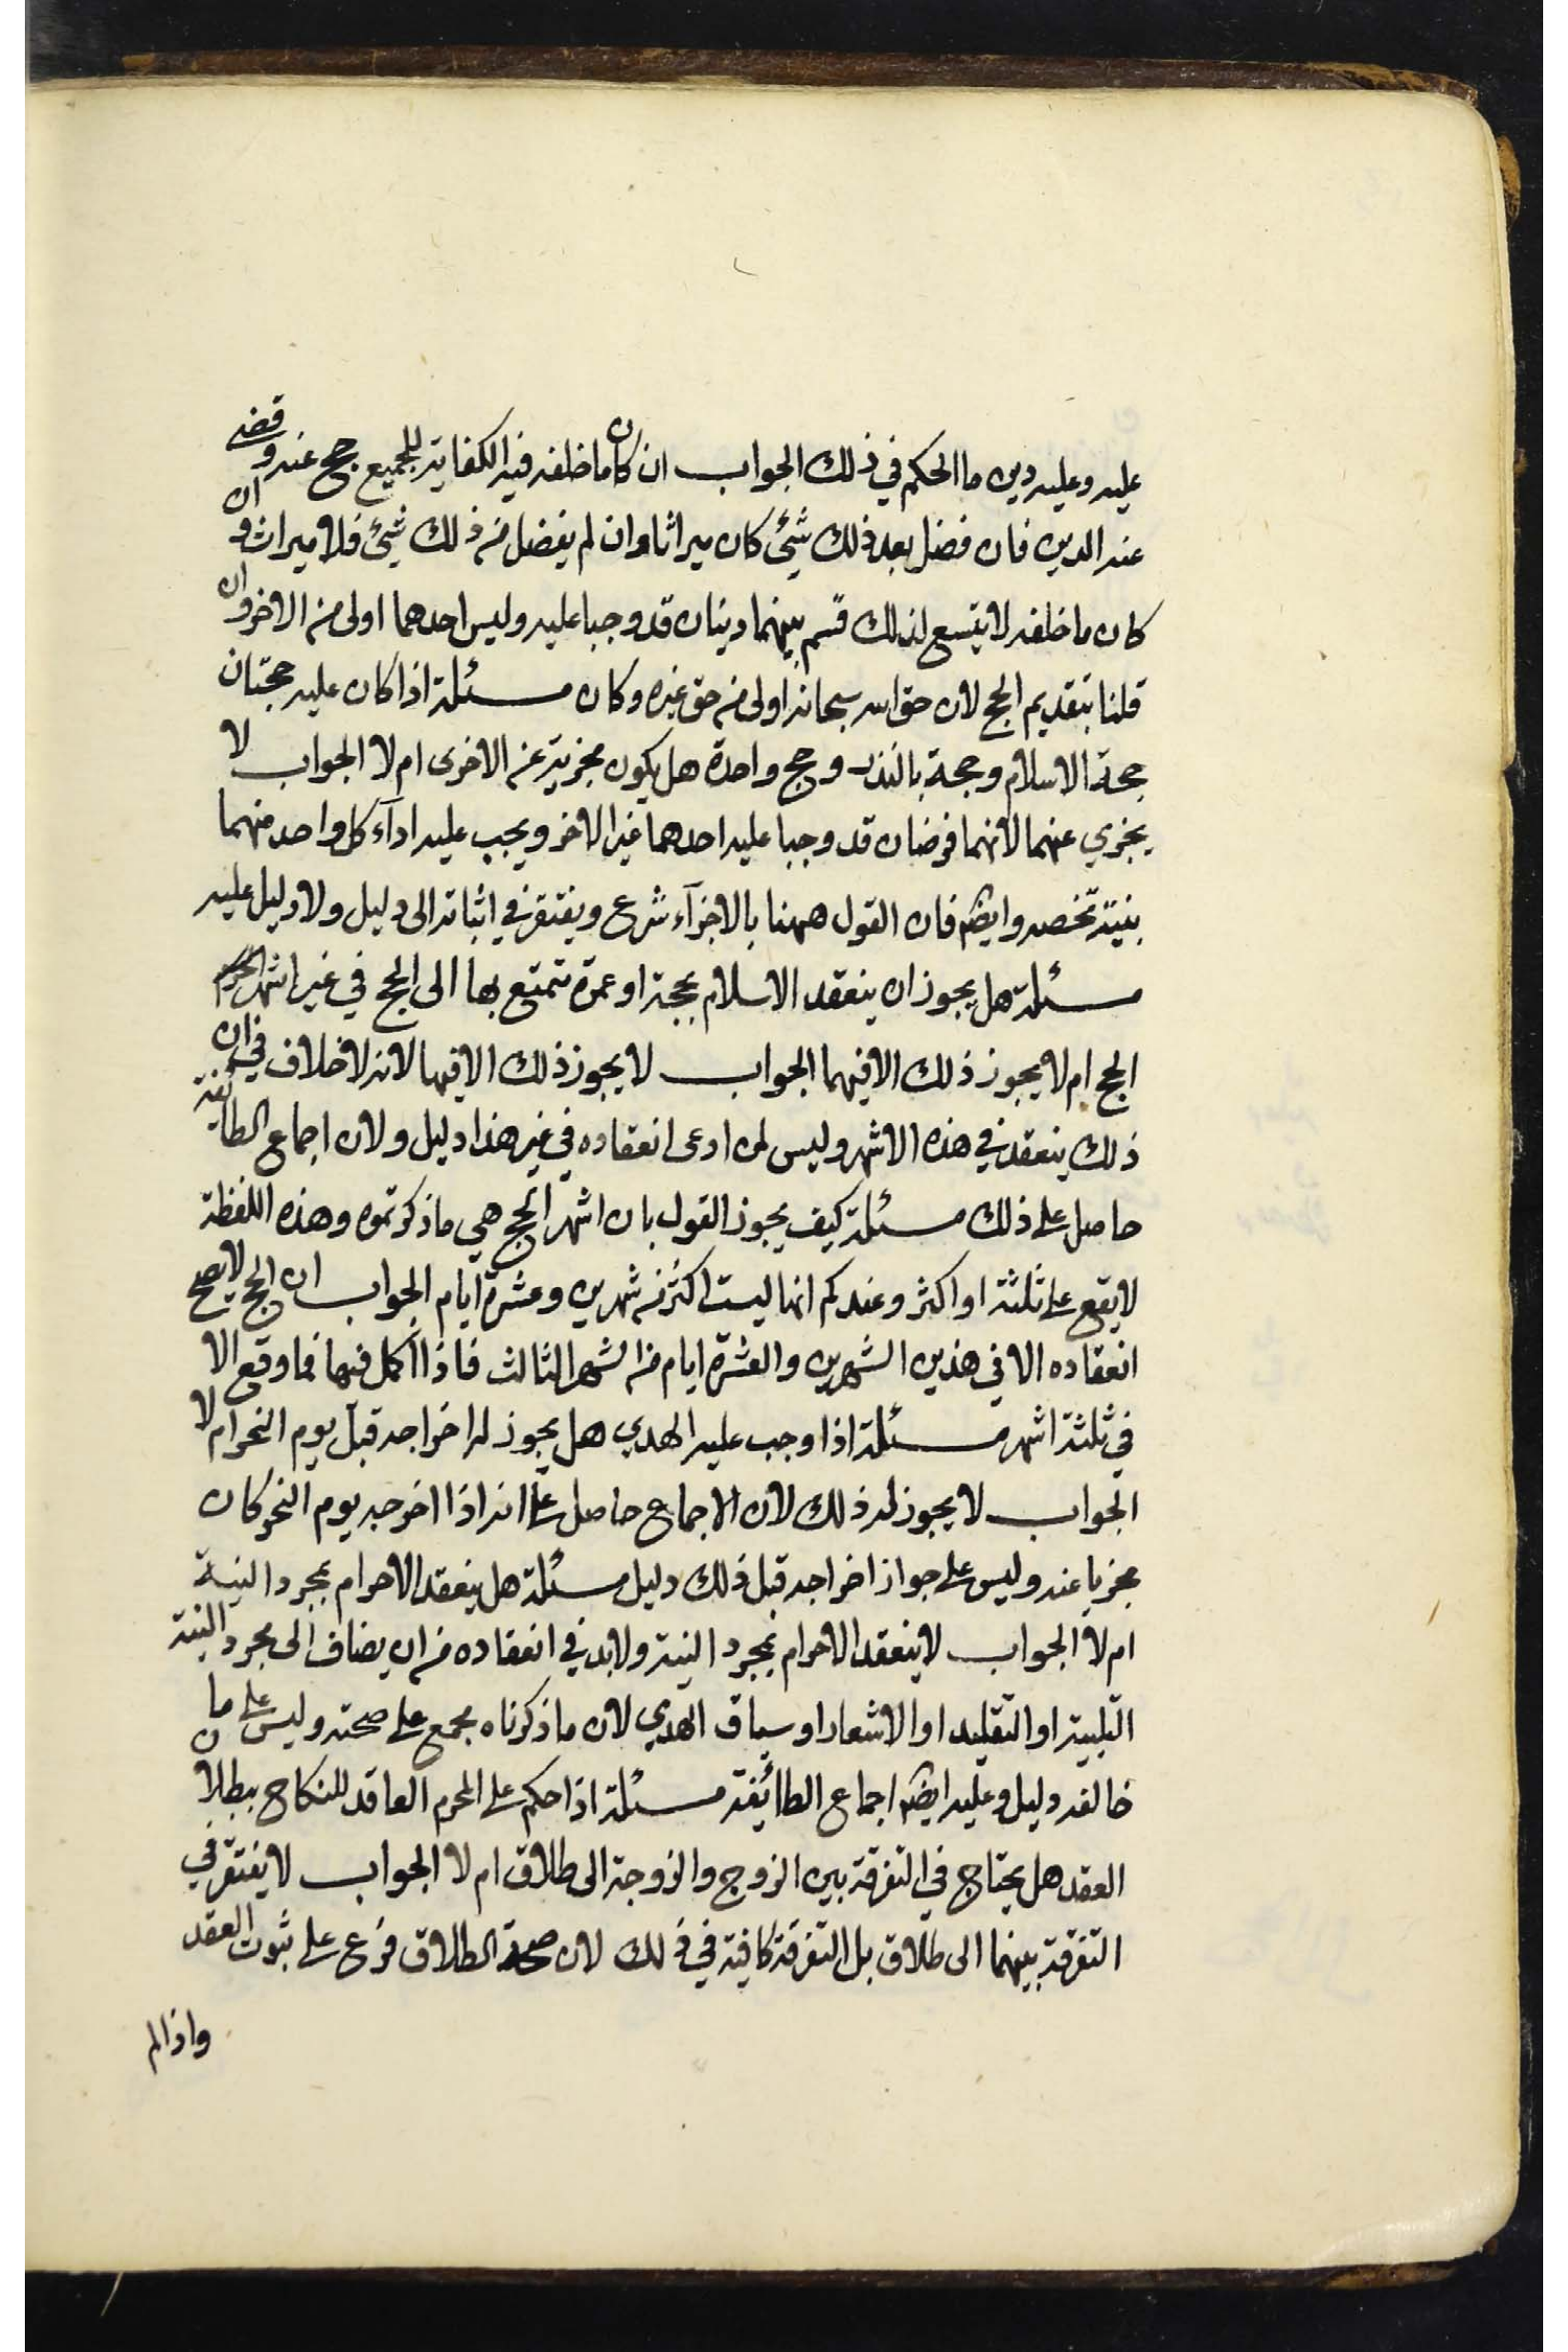 عليه وعليه دين ما الحكم في ذلك الجواب ان كان ما خلفه فيه الكفاية للجميع حج عنه وقضى
عنه الدين فان فضل بعد ذلك شيئ كان ميراثا وان لم يفضل من ذلك شيئ فلا ميراث وان
كان ما خلفه لا يتسع لذلك قسم بينهما دينان قد وجبا عليه وليس احدهما اولى من الاخر وان
قلنا بتقديم الحج لان حق الله سبحانه اولى من حق غيره وكان مسئلة اذا كان عليه حجتان
حجة الاسلام وحجة بالنذر وحج واحدة هل يكون مجزية عن الاخرى ام لا الجواب لا
يجزي عنهما لانهما فرضان قد وجبا عليه احدهما غير الاخر ويجب عليه اداء كل واحد منهما
بنية تخصه وايضا فان القول ههنا بالاجزآء شرع ويفتقر في اثباته الى دليل ولا دليل عليه
مسئلة هل يجوز ان ينعقد الاسلام بحجة او عمرة تتمتع بها الى الحج في غير اشهر
الحج ام لا يجوز ذلك الا فيهما الجواب لا يجوز ذلك الا فيها لانه لا خلاف في ان
ذلك ينعقد في هذه الاشهر وليس لمن ادعى انعقاده في غير هذا دليل ولان اجماع الطايفة
حاصل على ذلك مسئلة كيف يجوز القول بان اشهر الحج هي ما ذكرتموه وهذه اللفظة
لا يقع على ثلثة او اكثر وعندكم انها ليست اكثر من شهرين وعشرة ايام الجواب ان الحج لا يصح
انعقاده الا في هذين الشهرين والعشرة ايام من الشهر الثالث فاذا اكمل فيها فما وقع الا
في ثلثة اشهر مسئلة اذا وجب عليه الهدي هل يجوز له اخراجه قبل يوم النحر ام لا
الجواب لا يجوز له ذلك لان الاجماع حاصل على انه اذا اخرجه يوم النحر كان
مجزيا عنه وليس على جواز اخراجه قبل ذلك دليل مسئلة هل ينعقد الاحرام بمجرد النية
ام لا الجواب لا ينعقد الاحرام بمجرد النية ولا بد في انعقاده من ان يضاف الى مجرد النية
التلبية او التقليد او الاشعار او سياق الهدي لان ما ذكرناه مجمع على صحته وليس على ما
خالفه دليل وعليه ايضا اجماع الطائفة مسئلة اذا حكم على المحرم العاقد للنكاح ببطلان
العقد هل يحتاج في التفرقة بين الزوج والزوجة الى طلاق ام لا الجواب لا يفتقر في
التفرقة بينهما الى طلاق بل التفرقة كافية في ذلك لان صحة الطلاق فرع على ثبوت العقد
واذا لم